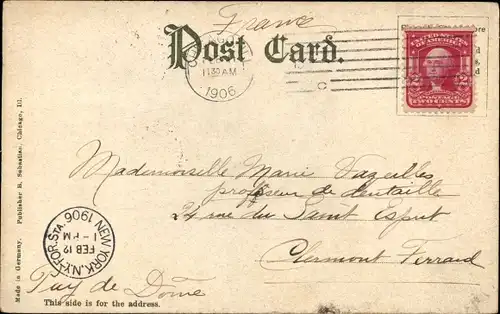 France
Post Card.
11 30 AM
1906
UNITED STATES
OF AMERICA
2 2
POSTAGE
TWO CENTS
Mademoiselle Marie Vazeilles
professeur de dentaille
24 rue du Saint Esprit
Clermont Ferrand
Puy de Dome
NEW YORK, N.Y.-FOR. STA. 1906
FEB 12
1 - PM
This side is for the address.
Made in Germany. Publisher R. Sebastian, Chicago, Ill.